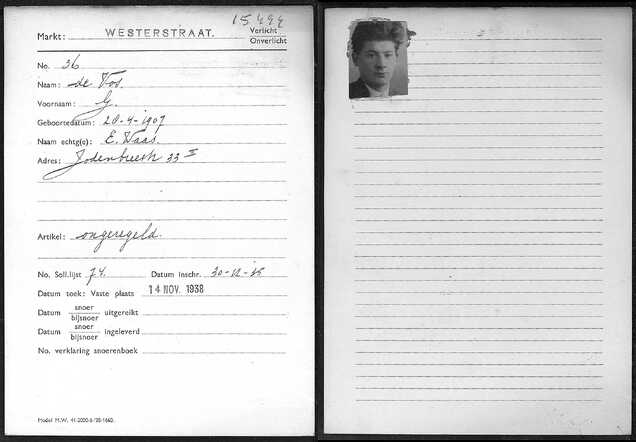 15494
Markt: WESTERSTRAAT.
Verlicht
Onverlicht
No. 36
Naam: de Vos.
Voornaam: G.
Geboortedatum: 20-4-1907
Naam echtg(e): E. Vaas.
Adres: Jodenbreestr 33 II
Artikel: ongeregeld.
No. Soll.lijst 74. Datum inschr. 30-12-
Datum toek: Vaste plaats 14 NOV. 1938
Datum snoer
bijsnoer uitgereikt
Datum snoer
bijsnoer ingeleverd
No. verklaring snoerenboek